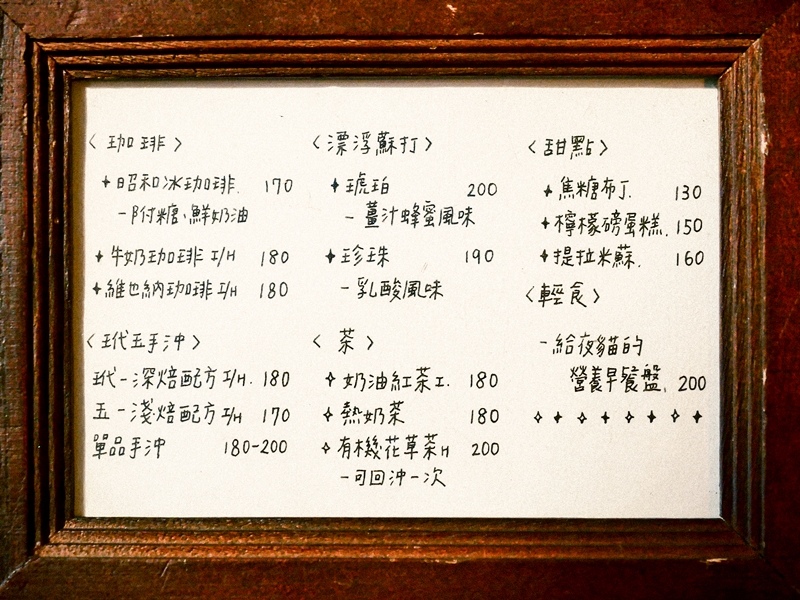 〈 珈琲 〉
✦昭和冰珈琲. 170
-附糖、鮮奶油
✦牛奶珈琲 I/H 180
✦維也納珈琲 I/H 180
〈玳五手沖〉
玳-深焙配方 I/H. 180
五-淺焙配方 I/H 170
單品手沖 180-200
〈漂浮蘇打〉
✦琥珀 200
-薑汁蜂蜜風味
✦珍珠 190
-乳酸風味
〈 茶 〉
✧奶油紅茶 I. 180
✧熱奶茶 180
✧有機花草茶 H 200
-可回沖一次
〈甜點〉
✦焦糖布丁. 130
✦檸檬磅蛋糕. 150
✦提拉米蘇. 160
〈輕食〉
-給夜貓的
營養早餐盤. 200
✧ ✧ ✧ ✧ ✧ ✧ ✧ ✧